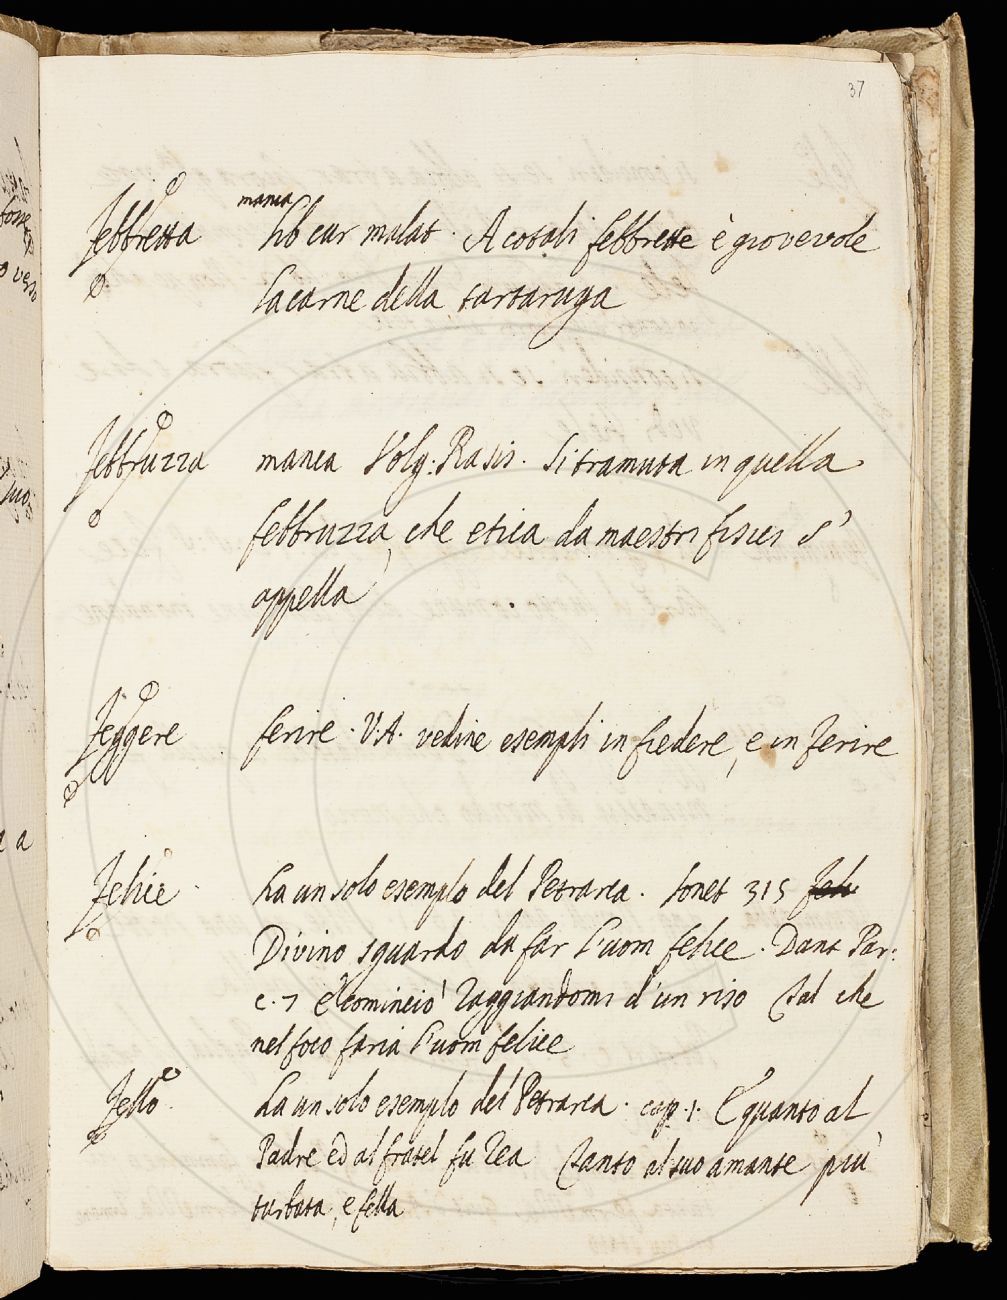 37
manca
Febbretta Lib cur malat. A cotali febbrette è giovevole
la carne della tartaruga
Febbruzza manca Volg: Rasis. Si tramuta in quella
febbruzza, che etica da maestri fisici s'
appella
Feggere ferire. V.A. vedine esempli in fiedere, e in ferire
Felice ha un solo esemplo del Petrarca. Sonet 315
Divino sguardo da far l'uom felice. Dant Par:
c. 7 E cominciò raggiandomi d'un riso Tal che
nel foco faria l'uom felice
Fello ha un solo esemplo del Petrarca. cap. 1. E quanto al
Padre ed al fratel fu rea Tanto al suo amante più
turbata, e fella